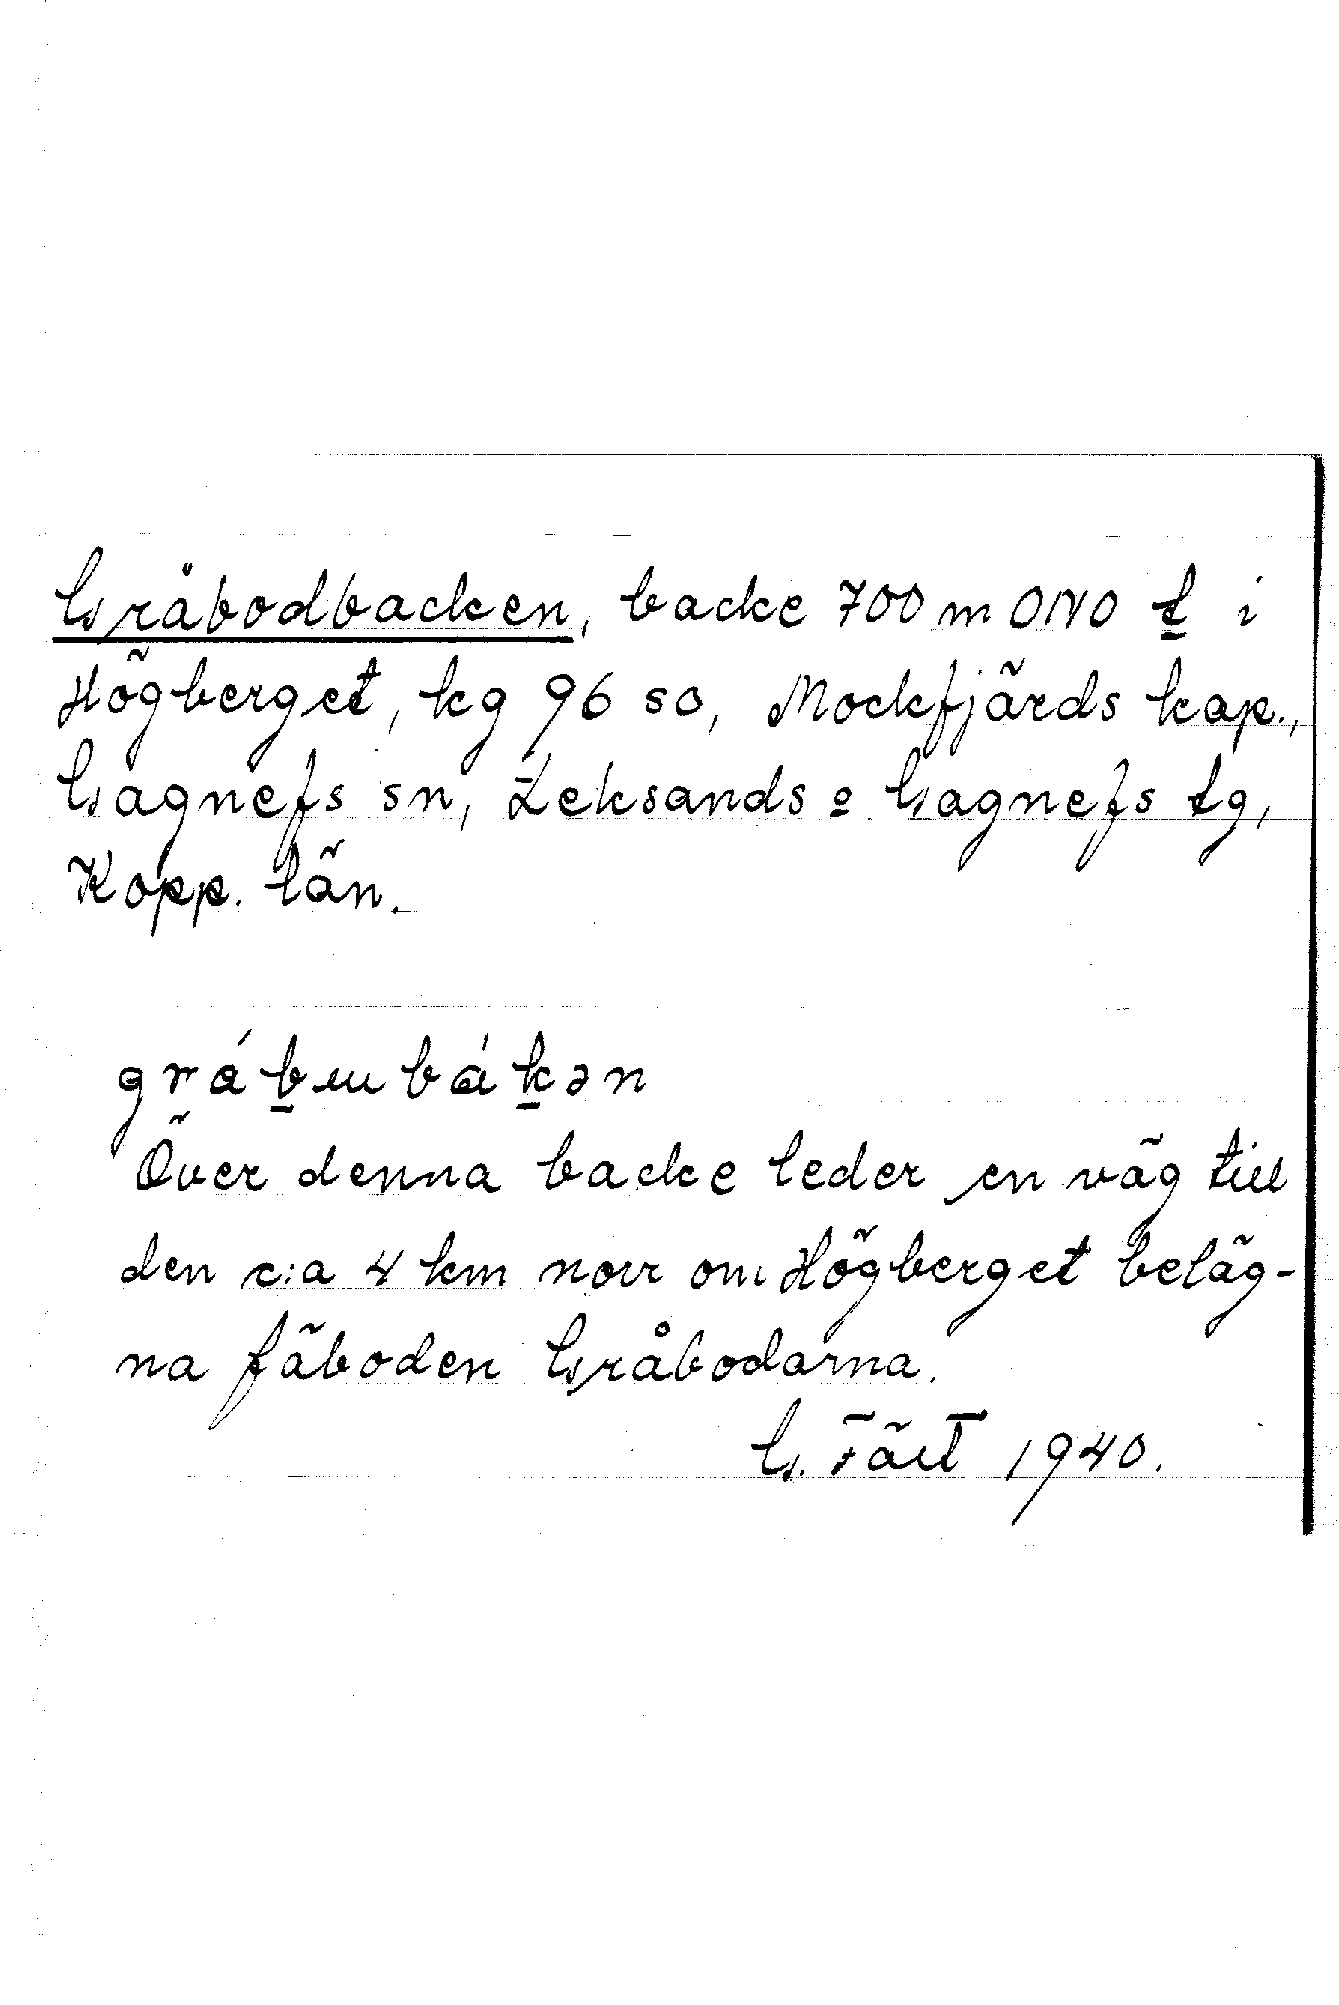 Gråbodbacken, backe 700 m ONO t i
Högberget, kg 96 so, Mockfjärds kap.,
Gagnefs sn, Leksands o Gagnefs tg,
Kopp. län.
Över denna backe leder en väg till
den c:a 4 km norr om Högberget beläg-
na fäboden Gråbodarna.
G. 1940.